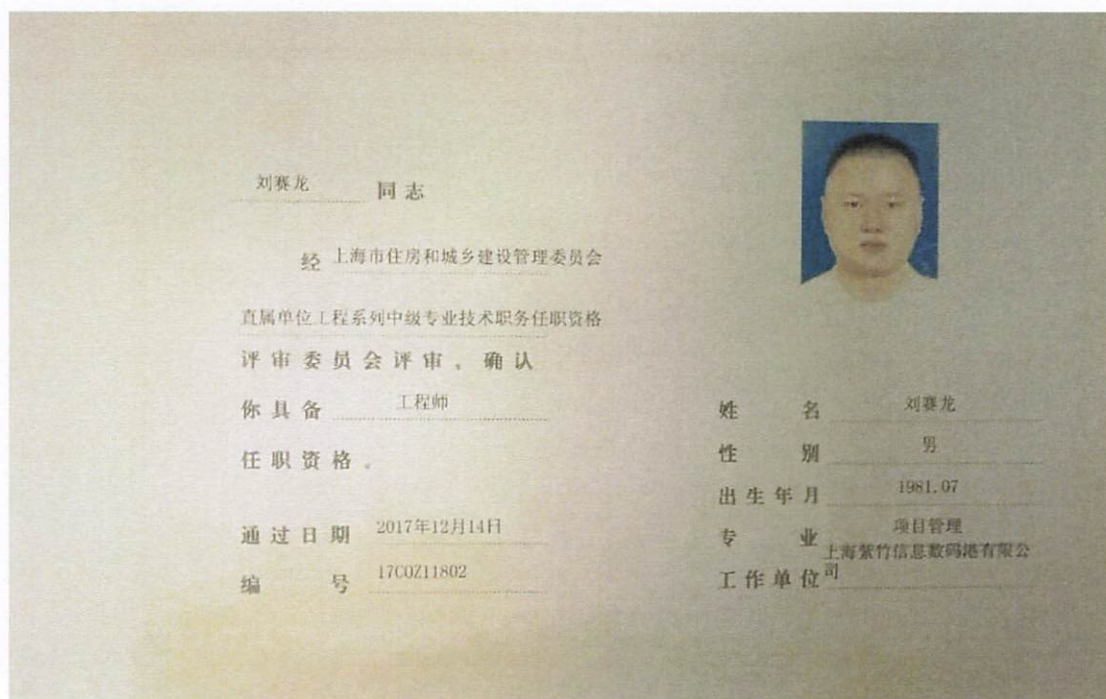 刘赛龙 同志
经 上海市住房和城乡建设管理委员会
直属单位工程系列中级专业技术职务任职资格
评审委员会评审。确认
你具备 工程师
任职资格。
通过日期 2017年12月14日
编号 17C0Z11802
姓名 刘赛龙
性别 男
出生年月 1981.07
专业 项目管理
工作单位 上海紫竹信息数码港有限公
司